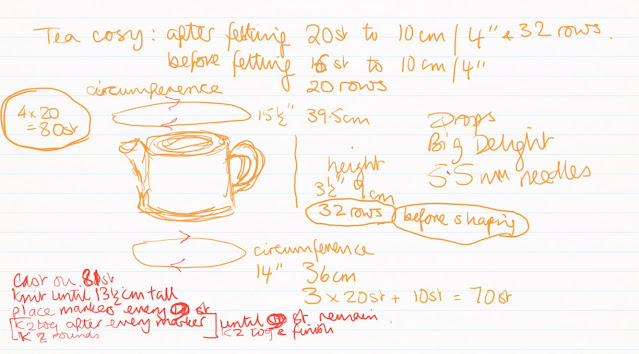 Tea cosy: after felting 20st to 10cm/4" & 32 rows.
before felting 16st to 10cm/4"
20 rows
circumference
4 x 20
= 80st
15½" 39.5cm
Drops
Big Delight
5.5mm needles
height
3½" 9cm
32 rows before shaping
circumference
14" 36cm
3 x 20st + 10st = 70st
cast on 81st
knit until 13½cm tall
place markers every st
K2tog after every marker
K 2 rounds
until st remain
K2 tog & finish